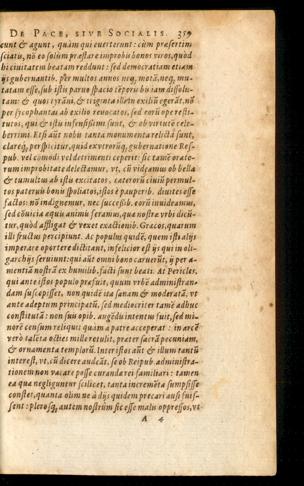 DE PACE, SIVE SOCIALIS. 359
cunt & agunt, quàm qui euerterunt: cùm præsertim
sciatu, nõ eo solùm præstare improbũ bonos viros, quòd
hi ciuitatem beatam reddunt: sed democratiam etiam
ijs gubernantib. per multos annos neq, motã, neq, mu-
tatam esse, sub istis paruo spacio tẽporu bis iam dissolu-
tam: & quos tyrãni, & triginta illi in exiliũ egerãt, nõ
per sycophantas ab exilio reuocatos, sed eorũ ope resti-
tutos, qui & istis infensissimi sunt, & ab virtute cele-
berrimi. Etsi aũt nobis tanta monumenta relicta sunt,
clareq, perspicitur, quid ex vtrorũq, gubernatione Res-
pub. vel cõmodi vel detrimenti ceperit: sic tamẽ orato-
rum improbitate delectamur, vt, cũ videamus ob bella
& tumultus ab istis excitatos, cæterorũ ciuiũ permul-
tos paternis bonis spoliatos, istos è pauperib. diuites esse
factos: nõ indignemur, nec successib. eorũ inuideamus,
sed cõuicia æquo animo feramus, quæ nostræ vrbi dicũ-
tur, quòd affligat & vexet exactionib. Græcos, quarum
illi fructus percipiunt. At populus quidẽ, quem isti alijs
imperare oportere dictitant, infelicior est ijs qui in oli-
garchijs seruiunt: qui aũt omni bono caruerũt, ij per a-
mentiã nostrã ex humilib. facti sunt beati. At Pericles,
qui ante istos populo præfuit, quum vrbẽ administran-
dam suscepisset, non quidẽ ita sanam & moderatã, vt
ante adeptum principatũ, sed mediocriter tamẽ adhuc
constitutã: non suis opib. augẽdis intentus fuit, sed mi-
norẽ censum reliquit quàm à patre acceperat: in arcẽ
verò talẽta octies mille retulit, præter sacrã pecuniam,
& ornamenta templorũ. Inter istos aũt & illum tantũ
interest, vt, cũ dicere audeãt, se ob Reipub. administra-
tionem non vacare posse curanda rei familiari: tamen
ea quæ negliguntur scilicet, tanta incremẽta sumpsisse
constet, quanta olim ne à dijs quidem precari ausi fuis-
sent: plerosq, autem nostrũm sic esse malis oppressos, vt
A 4